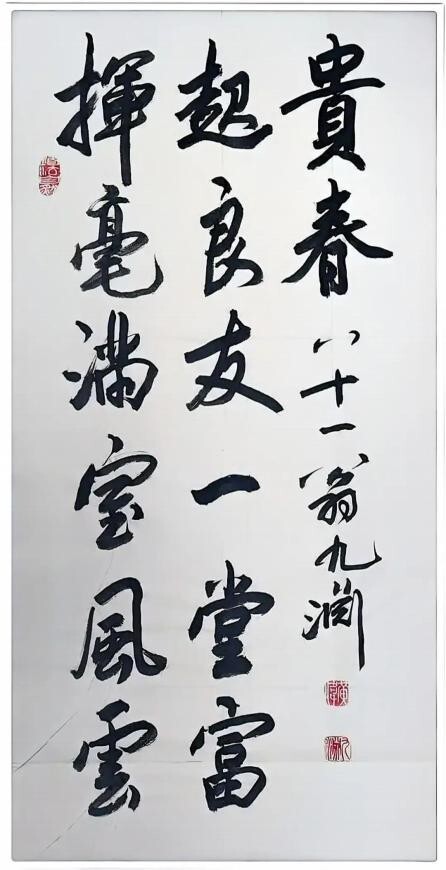 揮毫滿室風雲
起良友一堂富
貴春
八十一翁九渊